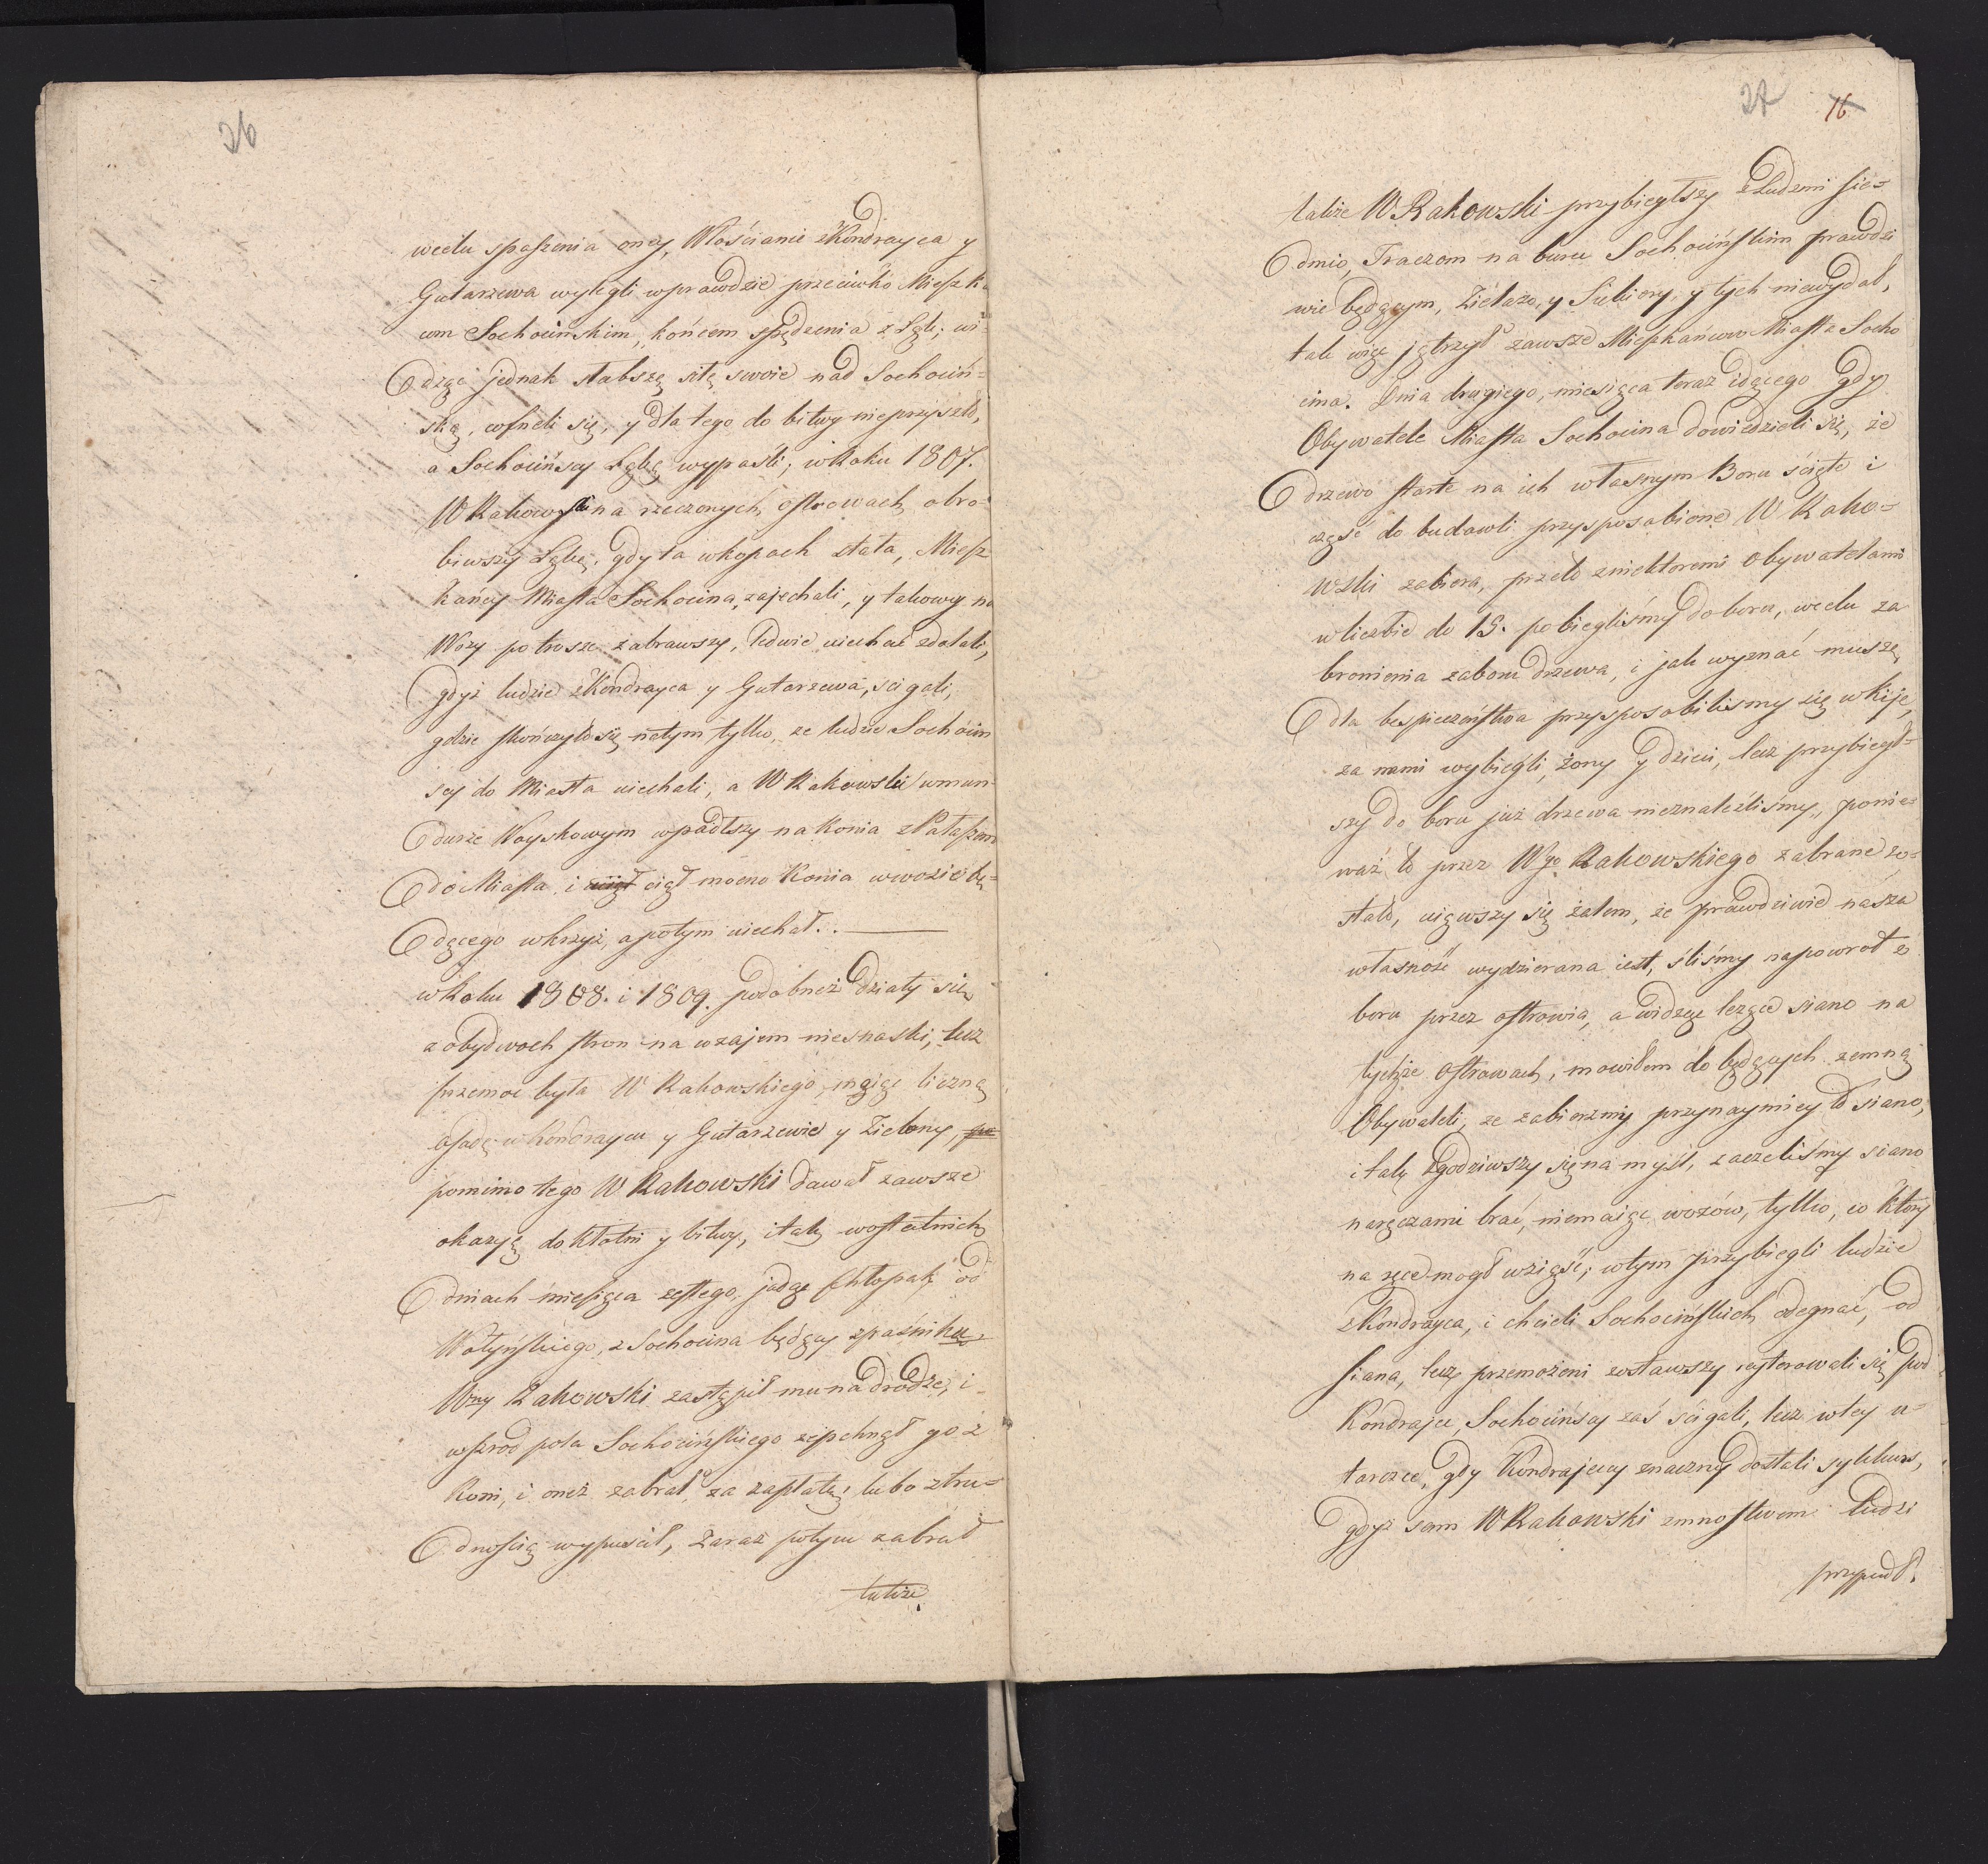 26
wcelu spaszenia oney, Włościanie z Kondrayca y
Gutarzewa wylegli wprawdzie przeciwko Mieszka
com Sochocinskim, końcem spędzenia z Łąk; wi-
dząc jednak słabszą siłę swoie nad Sochociń-
ską, cofneli się, y dla tego do bitwy nieprzyszło,
a Sochocińscy Łąkę wypasli; w Roku 1807.
W Rakowski na rzeczonych ostrowach obro-
biwszy Łąkę, gdy ta wkopach stała, Miesz
kańcy Miasta Sochocina, zajechali, y takowy na
Wozy po trosze zabrawszy, ledwie uiechać zdołali,
gdyż ludzie z Kondrayca y Gutarzewa, scigali,
gdzie skończyło się natym tylko, ze ludzie Sochociń
scy do Miasta uiechali, a W Rakowski w mun-
durze Woyskowym wpadłszy na Konia z Pałaszem
do Miasta i ciął mocno Konia wwozie bę-
dącego wkrzyż, a potym uiechał.
w Roku 1808. i 1809. podobnież działy się
z obydwoch stron na wzajem niesnaski, lecz
przemoc była W Rakowskiego, maiąc liczną
osadę w Kondraycu y Gutarzewie y Zielony,
pomimo tego W Rakowski dawał zawsze
okazyą do kłotni y bitwy, i tak wostatnich
dniach miesiąca zeszłego, jadąc Chłopak od
Wołyńskiego, z Sochocina będący zpaśnika,
Wny Rakowski zastąpił mu na drodze, i
wsrod pola Sochocińskiego zepchnął go z
Koni, i oneż zabrał, za zapłatę lubo ztru-
dnością wypuscił, zaraz potym zabrał
także
27 16
także W Rakowski przybiegłszy z Ludzmi sie-
dmio, Traczom na boru Sochocińskim prawdzi
wie będącym, Żelazo, y Siekiery, y tych niewydał,
tak więc jątrzył zawsze Mieszkańcow Miasta Socho
cina. Dnia drugiego, miesiąca teraz idącego gdy
Obywatele Miasta Sochocina dowiedzieli się, że
drzewo starte na ich własnym Boru ścięte i
częsć do budowli przysposobione W Rako-
wski zabiera, przeto zniektoremi Obywatelami
wliczbie do 15. pobiegliśmy do boru, wcelu za
bronienia zaboru drzewa, i jak wyznać muszę,
dla bespieczeństwa przysposobilismy się w Kije,
za nami wybiegli, żony y dzieci, lecz przybiegł-
szy do boru już drzewa nieznaleźliśmy, ponie-
waż to przez Wgo Rakowskiego zabrane zo-
stało, uiąwszy się żalem, że prawdziwie nasza
własność wydzierana iest, śliśmy napowrot z
boru przez ostrowia, a widząc leżące siano na
tychże ostrowach, mowiłem do będących zemną
Obywateli, ze zabierzmy przynaymiey to siano,
i tak zgodziwszy się na myśl, zaczeliśmy siano
naręczami brać, niemaiąc wozów, tylko, co ktory
na ręce mogł wziąść; wtym przybiegli ludzie
z Kondrayca, i chcieli Sochocińskich odegnać, od
siana, lecz przemożeni zostawszy reyterowali się pod
Kondrajec, Sochocińscy zaś ścigali, lecz wtey u-
tarczce, gdy Kondrajeccy znaczny dostali sykkurs,
gdyż sam W Rakowski zmnostwem ludzi
przypadł.